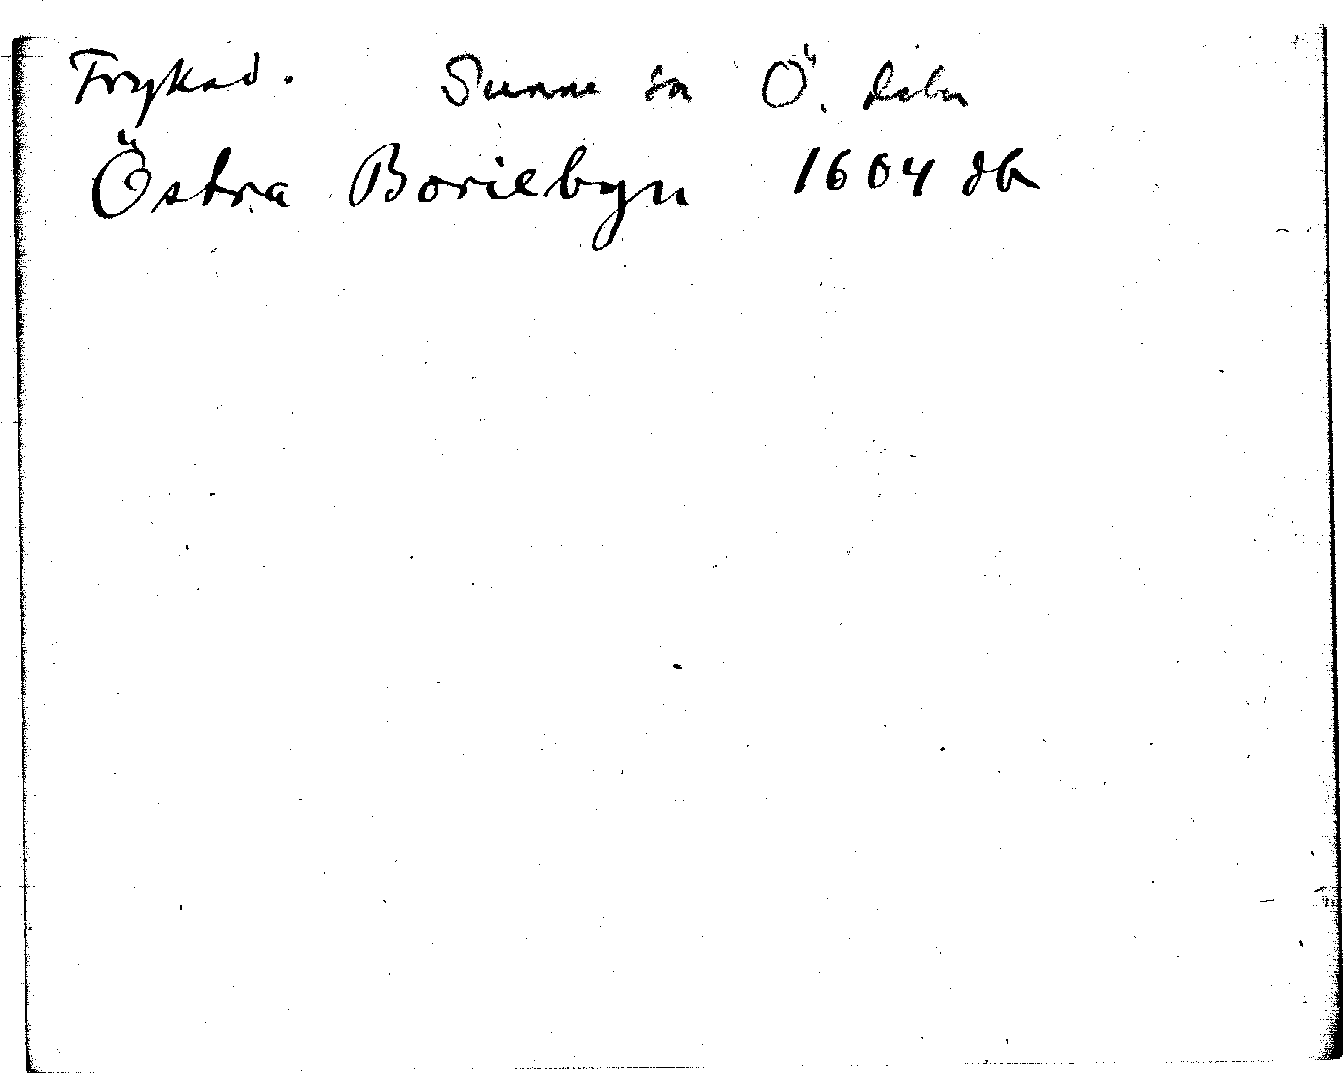 Fryksd. Sunne sn Ö.
Östra Borilebyn 1604 Jb